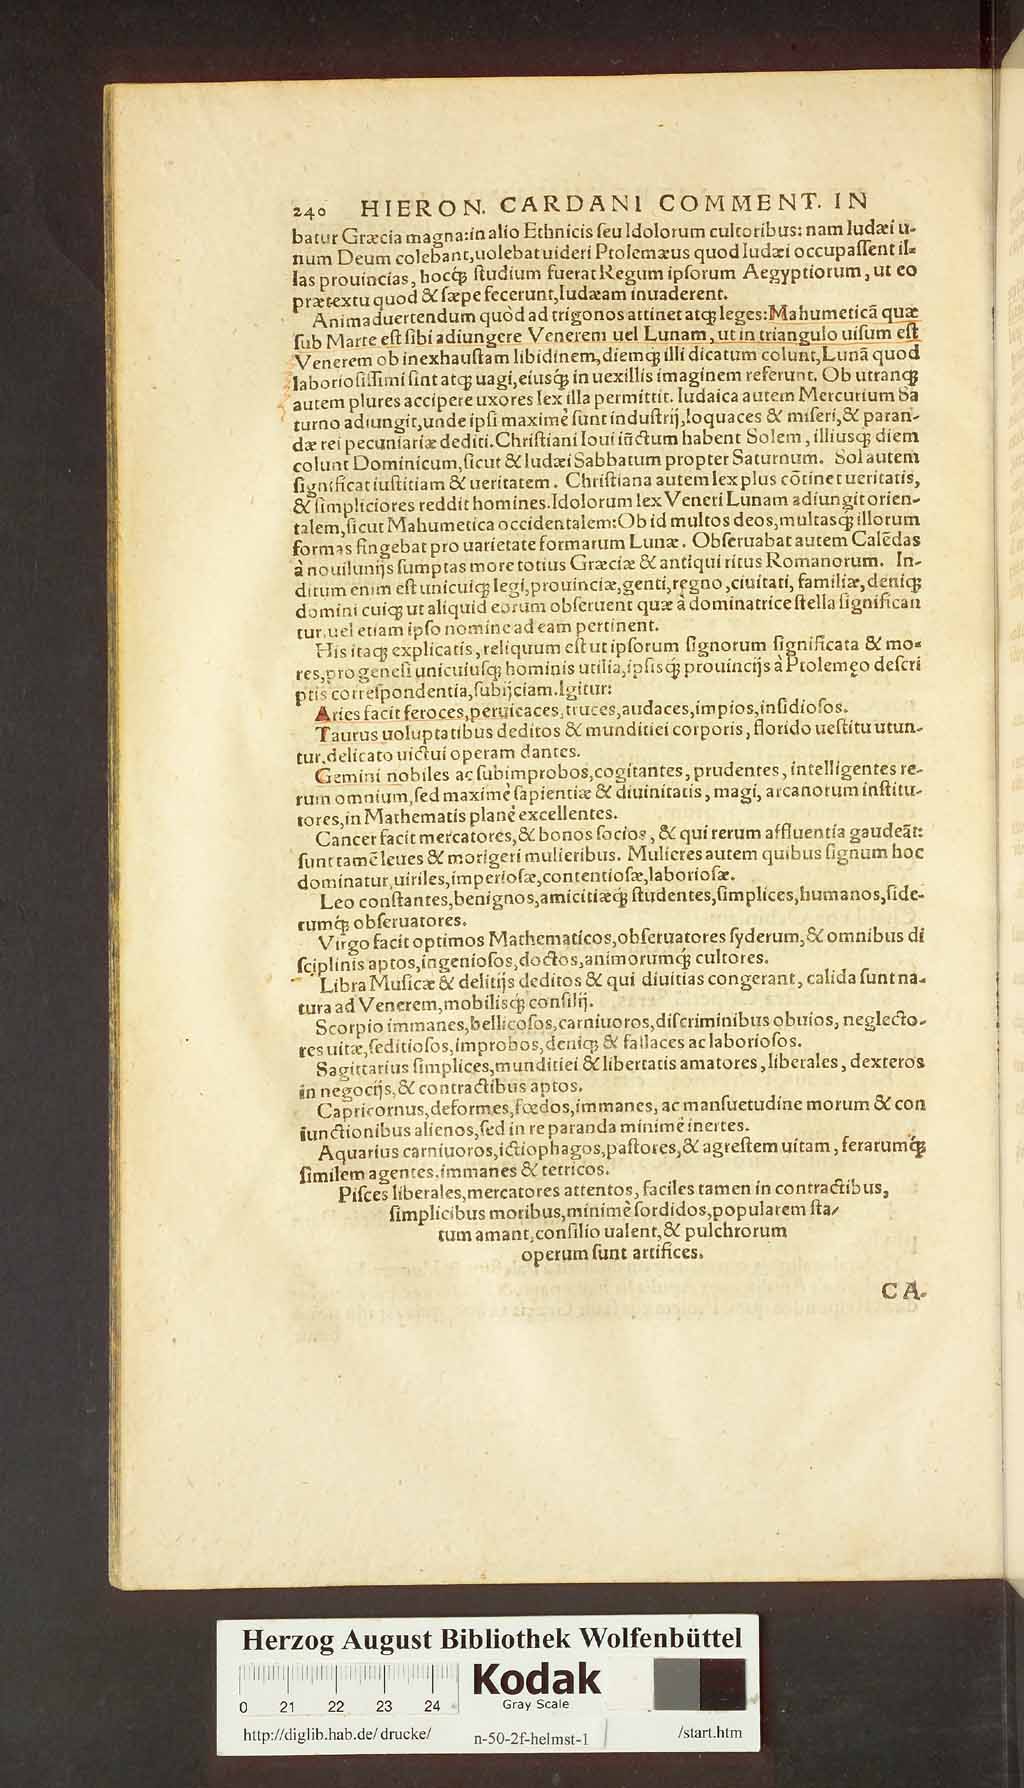 240 HIERON. CARDANI COMMENT. IN
batur Græcia magna: in alio Ethnicis ſeu Idolorum cultoribus: nam Iudæi u-
num Deum colebant, uolebat uideri Ptolemæus quod Iudæi occupaſſent il-
las prouincias, hocq́; ſtudium fuerat Regum ipſorum Aegyptiorum, ut eo
prætextu quod & ſæpe fecerunt, Iudæam inuaderent.
Animaduertendum quòd ad trigonos attinet atq; leges: Mahumeticā quæ
ſub Marte eſt ſibi adiungere Venerem uel Lunam, ut in triangulo uiſum eſt
Venerem ob inexhauſtam libidinem, diemq; illi dicatum colunt, Lunā quod
laborioſiſſimi ſint atq; uagi, eiusq́; in uexillis imaginem referunt. Ob utranq;
autem plures accipere uxores lex illa permittit. Iudaica autem Mercurium Sa
turno adiungit, unde ipſi maximè ſunt induſtrij, loquaces & miſeri, & paran-
dæ rei pecuniariæ dediti. Chriſtiani Ioui iūctum habent Solem, illiusq; diem
colunt Dominicum, ſicut & Iudæi Sabbatum propter Saturnum. Sol autem
ſignificat iuſtitiam & ueritatem. Chriſtiana autem lex plus cōtinet ueritatis,
& ſimpliciores reddit homines. Idolorum lex Veneri Lunam adiungit orien-
talem, ſicut Mahumetica occidentalem: Ob id multos deos, multasq; illorum
formas fingebat pro uarietate formarum Lunæ. Obſeruabat autem Calēdas
à nouilunijs ſumptas more totius Græciæ & antiqui ritus Romanorum. In-
ditum enim eſt unicuiq; legi, prouinciæ, genti, regno, ciuitati, familiæ, deniq;
domini cuiq; ut aliquid eorum obſeruent quæ à dominatrice ſtella ſignifican
tur, uel etiam ipſo nomine ad eam pertinent.
His itaq; explicatis, reliquum eſt ut ipſorum ſignorum ſignificata & mo-
res, pro geneſi uniuscuiuſq; hominis utilia, ipſisq; prouincijs à Ptolemęo deſcri
ptis correſpondentia, ſubijciam. Igitur:
Aries facit feroces, peruicaces, truces, audaces, impios, inſidioſos.
Taurus uoluptatibus deditos & munditiei corporis, florido ueſtitu utun-
tur, delicato uictui operam dantes.
Gemini nobiles ac ſubimprobos, cogitantes, prudentes, intelligentes re-
rum omnium, ſed maximè ſapientiæ & diuinitatis, magi, arcanorum inſtitu-
tores, in Mathematis planè excellentes.
Cancer facit mercatores, & bonos ſocios, & qui rerum affluentia gaudeāt:
ſunt tamē leues & morigeri mulieribus. Mulieres autem quibus ſignum hoc
dominatur, uiriles, imperioſæ, contentioſæ, laborioſæ.
Leo conſtantes, benignos, amicitiæq́; ſtudentes, ſimplices, humanos, ſide-
rumq́; obſeruatores.
Virgo facit optimos Mathematicos, obſeruatores ſyderum, & omnibus di
ſciplinis aptos, ingenioſos, doctos, animorumq́; cultores.
Libra Muſicæ & delitijs deditos & qui diuitias congerant, calida ſunt na-
tura ad Venerem, mobilisq́; conſilij.
Scorpio immanes, bellicoſos, carniuoros, diſcriminibus obuios, neglecto-
res uitæ, ſeditioſos, improbos, deniq; & fallaces ac laborioſos.
Sagittarius ſimplices, munditiei & libertatis amatores, liberales, dexteros
in negocijs, & contractibus aptos.
Capricornus, deformes, fœdos, immanes, ac manſuetudine morum & con
iunctionibus alienos, ſed in re paranda minimè inertes.
Aquarius carniuoros, ictiophagos, paſtores, & agreſtem uitam, ferarumq́;
ſimilem agentes, immanes & tetricos.
Piſces liberales, mercatores attentos, faciles tamen in contractibus,
ſimplicibus moribus, minimè ſordidos, popularem ſta-
tum amant, conſilio ualent, & pulchrorum
operum ſunt artifices.
CA-
Herzog August Bibliothek Wolfenbüttel
Kodak
Gray Scale
0 21 22 23 24
http://diglib.hab.de/drucke/ n-50-2f-helmst-1 /start.htm